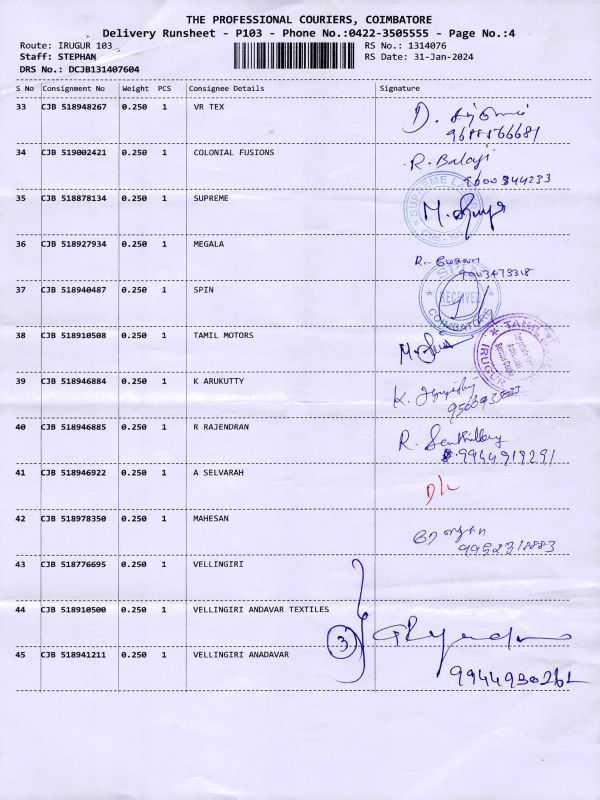 THE PROFESSIONAL COURIERS, COIMBATORE
Delivery Runsheet - P103 - Phone No.:0422-3505555 - Page No.:4
Route: IRUGUR 103
RS No.: 1314076
Staff: STEPHAN
RS Date: 31-Jan-2024
DRS No.: DCJB131407604
S No Consignment No Weight PCS Consignee Details Signature
33 CJB 518948267 0.250 1 VR TEX
34 CJB 519002421 0.250 1 COLONIAL FUSIONS R. Balaji
9600344233
35 CJB 518878134 0.250 1 SUPREME
36 CJB 518927934 0.250 1 MEGALA
37 CJB 518940487 0.250 1 SPIN RECEIVED
COIMBATORE
38 CJB 518910508 0.250 1 TAMIL MOTORS
IRUGUR
39 CJB 518946884 0.250 1 K ARUKUTTY
40 CJB 518946885 0.250 1 R RAJENDRAN
9944919291
41 CJB 518946922 0.250 1 A SELVARAH D/L
42 CJB 518978350 0.250 1 MAHESAN
43 CJB 518776695 0.250 1 VELLINGIRI
44 CJB 518910500 0.250 1 VELLINGIRI ANDAVAR TEXTILES
3
45 CJB 518941211 0.250 1 VELLINGIRI ANADAVAR